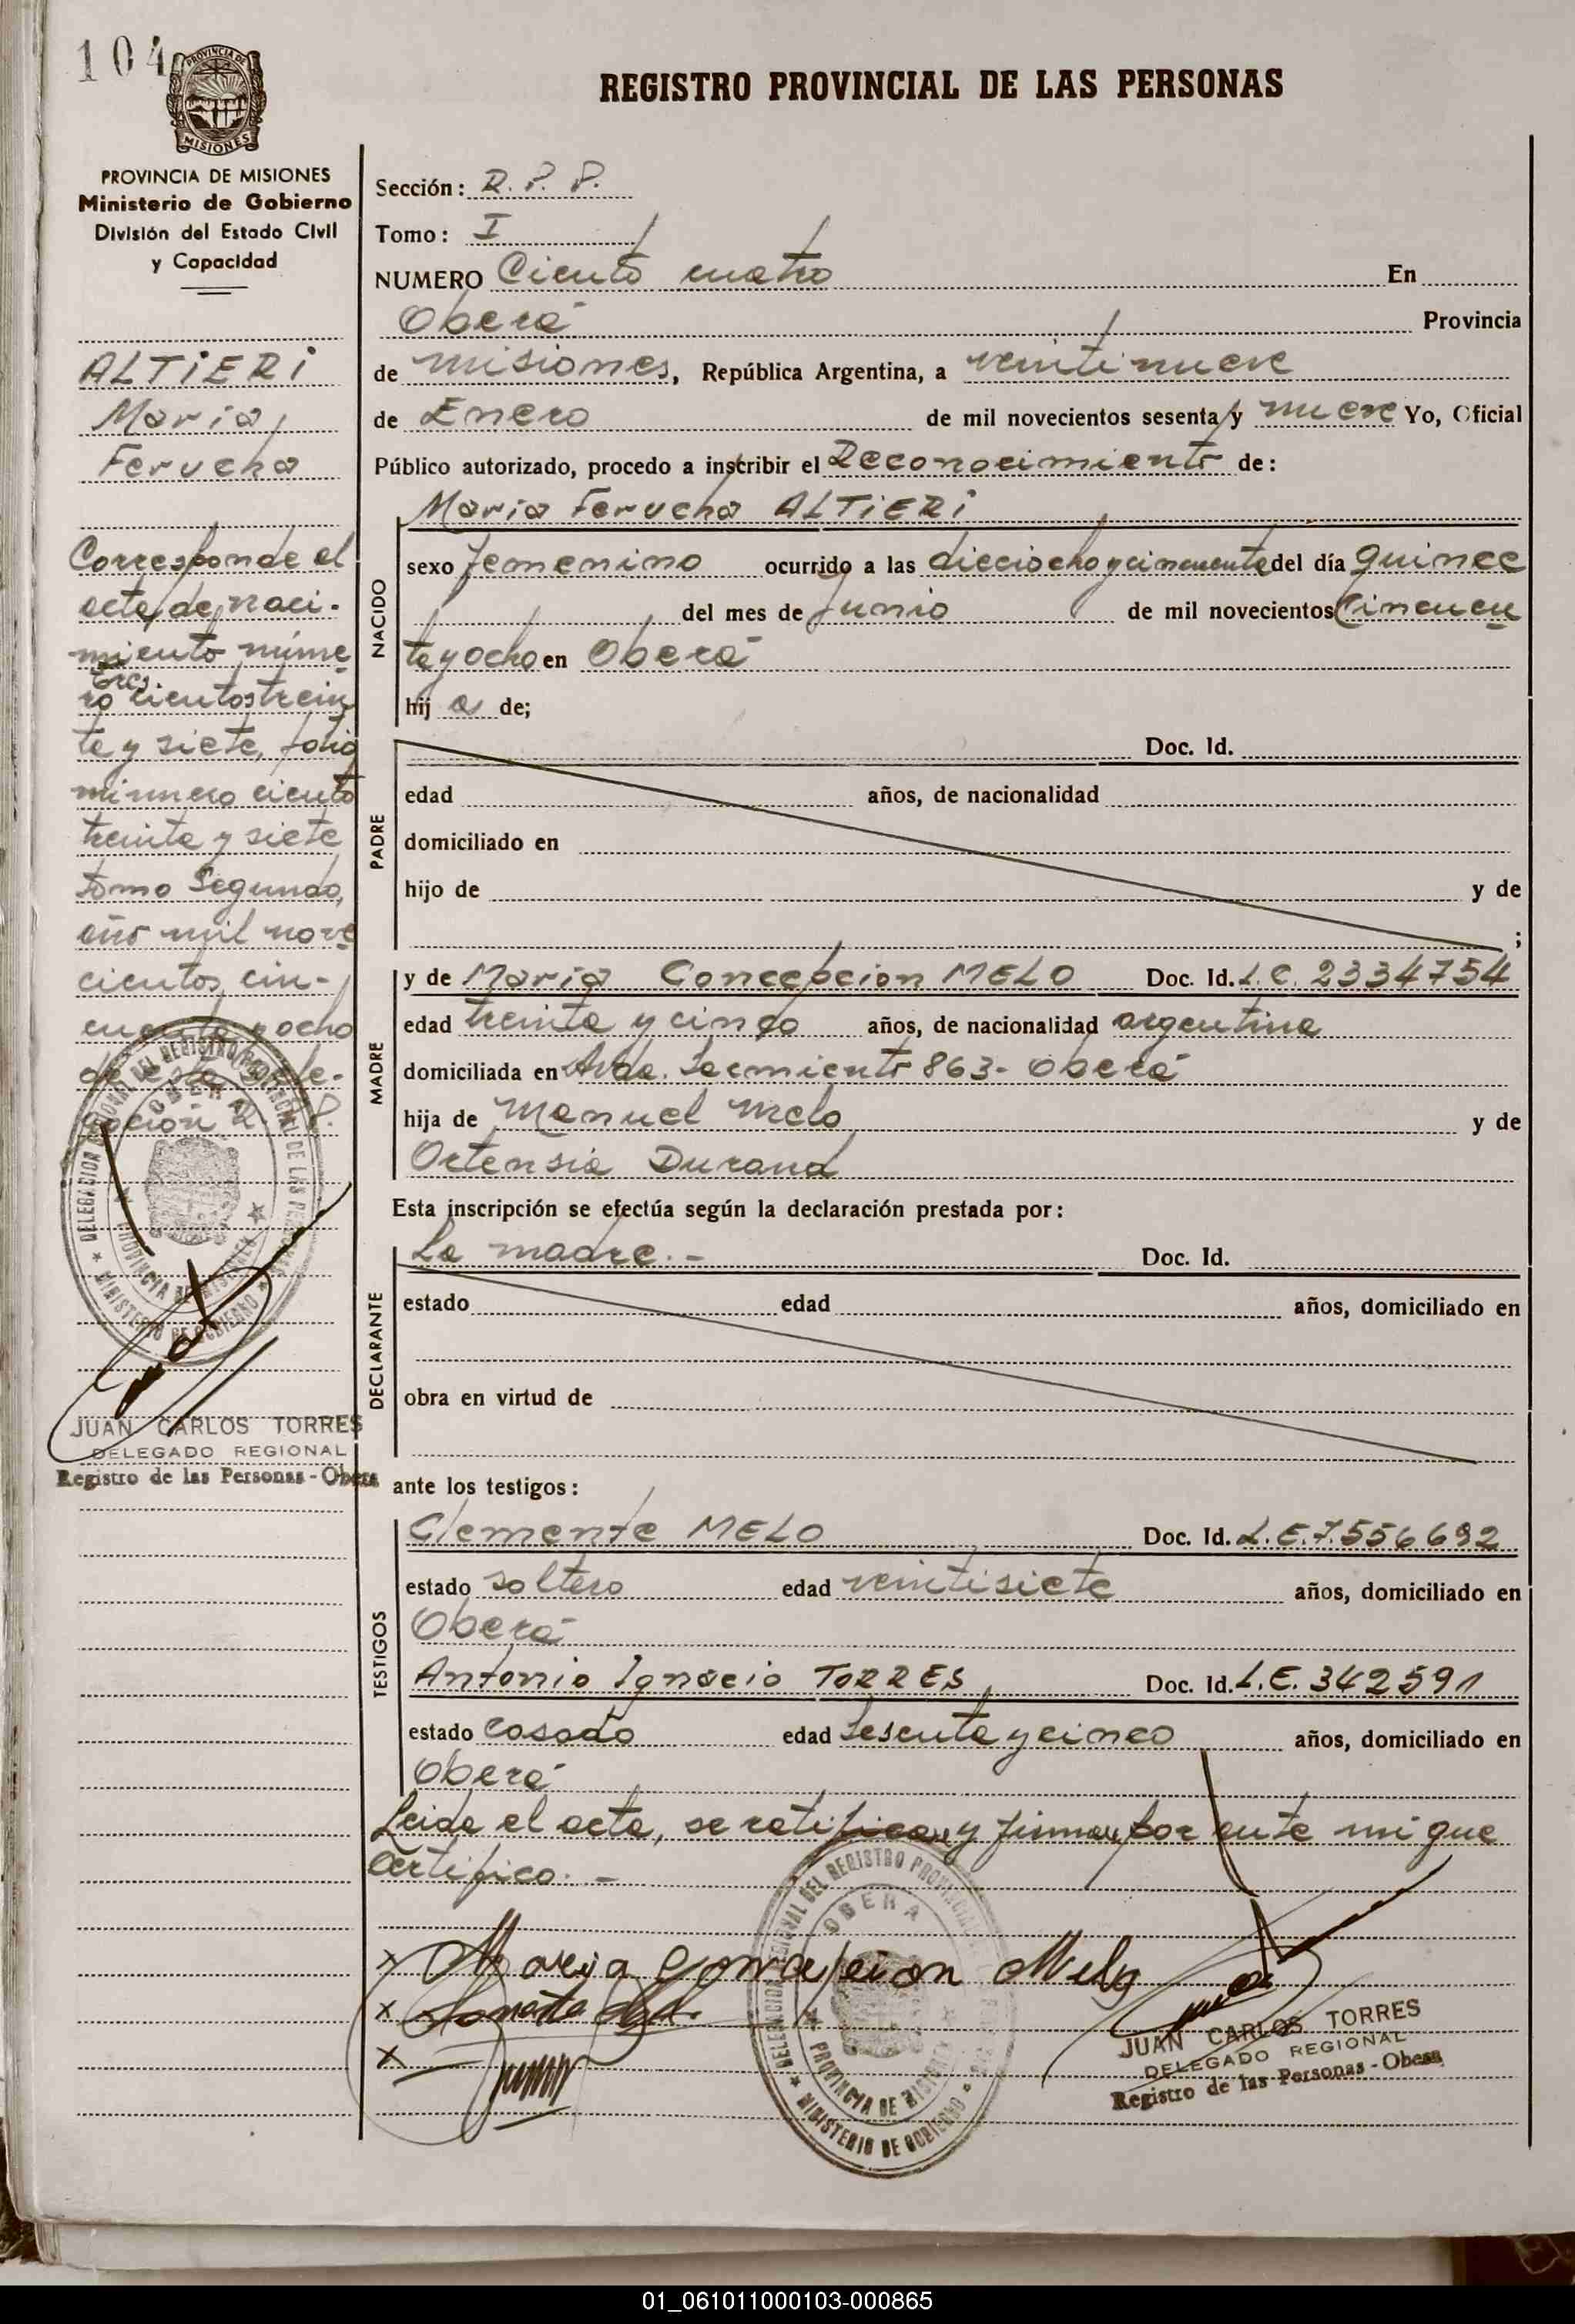 104
PROVINCIA DE
MISIONES
PROVINCIA DE MISIONES
Ministerio de Gobierno
División del Estado Civil
y Capacidad
ALTiERi
Maria
Ferucha
Corresponde el
acta de naci-
miento núme
tres
ro cientos trein
ta y siete, folio
número ciento
treinta y siete
tomo Segundo,
año mil nove
cientos cin-
cuenta y ocho
de esta Dele-
gación R. P. P.
DELEGACION REGIONAL DEL REGISTRO PROVINCIAL DE LAS PERSONAS
OBERA
PROVINCIA DE MISIONES
MINISTERIO DE GOBIERNO
JUAN CARLOS TORRES
DELEGADO REGIONAL
Registro de las Personas - Obera
REGISTRO PROVINCIAL DE LAS PERSONAS
Sección: R. P. P.
Tomo: I
NUMERO Ciento cuatro En
Oberá Provincia
de Misiones, República Argentina, a veintinueve
de Enero de mil novecientos sesenta y nueve Yo, Oficial
Público autorizado, procedo a inscribir el Reconocimiento de:
NACIDO
Maria Ferucha ALTiERi
sexo femenino ocurrido a las dieciocho y cincuenta del día quince
del mes de Junio de mil novecientos Cincuen
ta y ocho en Oberá
hij a de;
PADRE
Doc. Id.
edad años, de nacionalidad
domiciliado en
hijo de y de
;
MADRE
y de Maria Concepcion MELO Doc. Id. L.C. 2334754
edad treinta y cinco años, de nacionalidad argentina
domiciliada en Avda. Sarmiento 863- Oberá
hija de Manuel Melo y de
Ortensia Durand
Esta inscripción se efectúa según la declaración prestada por:
DECLARANTE
La madre.- Doc. Id.
estado edad años, domiciliado en
obra en virtud de
ante los testigos:
TESTIGOS
Clemente MELO Doc. Id. L.E. 7.556692
estado soltero edad veintisiete años, domiciliado en
Oberá
Antonio Ignacio TORRES Doc. Id. L.E. 342591
estado casado edad Sesenta y cinco años, domiciliado en
Oberá
Leida el acta, se ratifican y firman por ante mi que
Certifico.-
x Maria Concepcion Melo
x
x
DELEGACION REGIONAL DEL REGISTRO PROVINCIAL DE LAS PERSONAS
OBERA
PROVINCIA DE MISIONES
MINISTERIO DE GOBIERNO
JUAN CARLOS TORRES
DELEGADO REGIONAL
Registro de las Personas - Obera
01_061011000103-000865